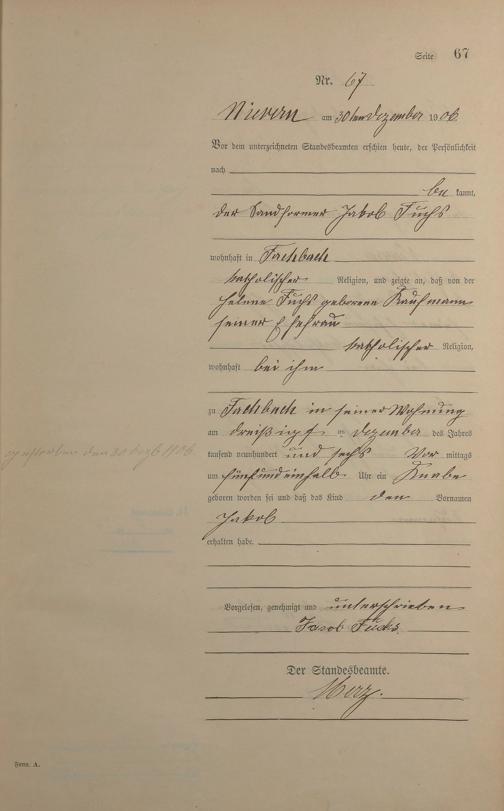 Seite 67
Nr. 67
Nievern am 30ten Dezember 1906
Vor dem unterzeichneten Standesbeamten erschien heute, der Persönlichkeit
nach
be kannt,
der Sandformer Jakob Fuchs
wohnhaft in Fachbach
katholischer Religion, und zeigte an, daß von der
Helene Fuchs geborene Kaufmann
seiner Ehefrau
katholischer Religion,
wohnhaft bei ihm
zu Fachbach in seiner Wohnung
am dreißigst en Dezember des Jahres
tausend neunhundert und sechs Vor mittags
gestorben den 30 1906
um fünfundeinhalb Uhr ein Knabe
geboren worden sei und daß das Kind den Vornamen
Jakob
erhalten habe.
Vorgelesen, genehmigt und unterschrieben
Jacob Fuchs
Der Standesbeamte.
Merz.
Form. A.